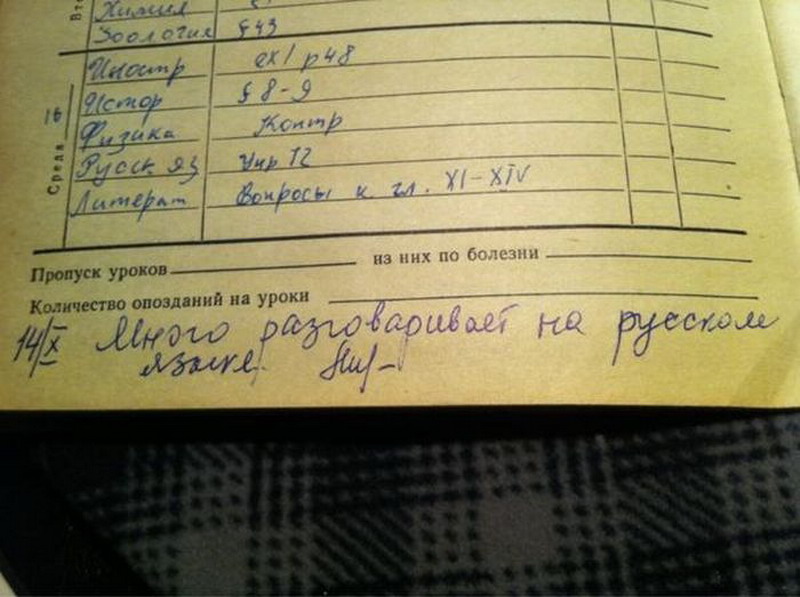 Химия
Зоология § 43
Иностр ex 1 p 48
16 Истор § 8-9
Среда
Физика Контр
Русск яз Упр 12
Литерат Вопросы к гл. XI-XIV
Пропуск уроков из них по болезни
Количество опозданий на уроки
14/X Много разговаривает на русском
языке.